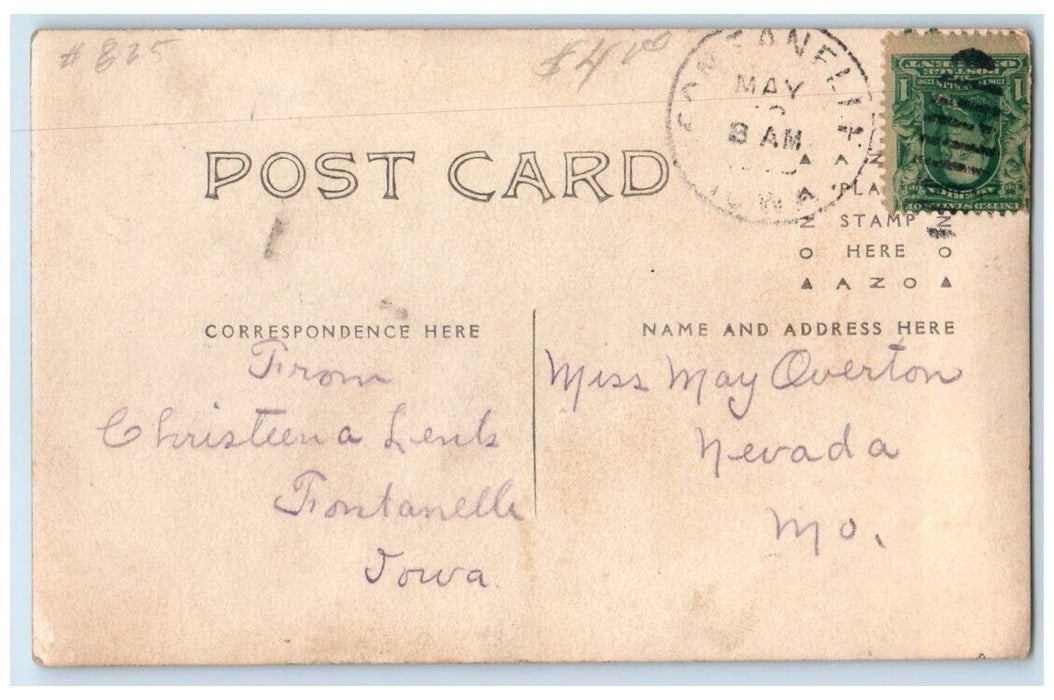 # 825
$4.00
MAY
8 AM
IOWA
POST CARD
PLA
STAMP
HERE
AZO
CORRESPONDENCE HERE
NAME AND ADDRESS HERE
From
Christeena Lents
Fontanelle
Iowa.
Miss May Overton
Nevada
Mo.